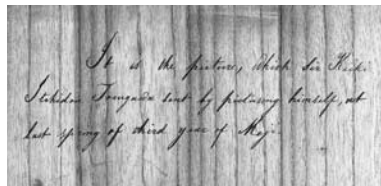 It is the picture, which Sir Keiki
Stchidsu Tougawa sent by picturing himself, at
last spring of third year of Meji.